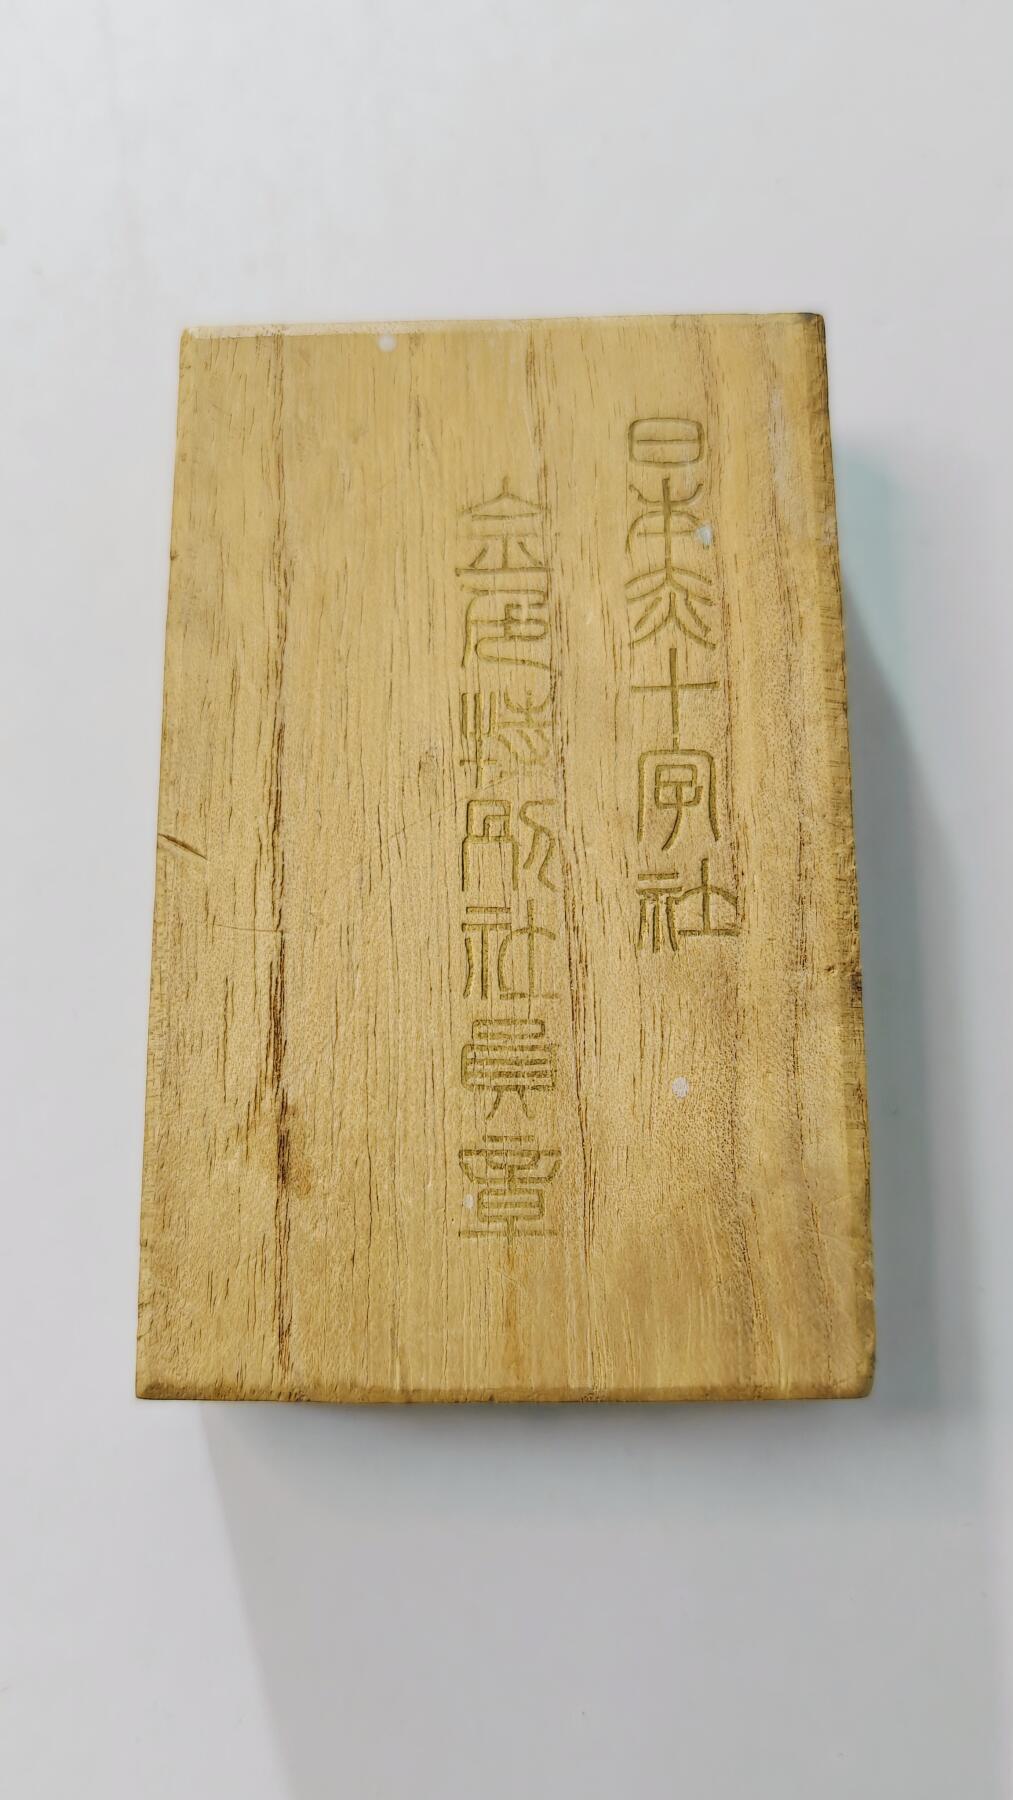 日本赤十字社
金色特別社員章